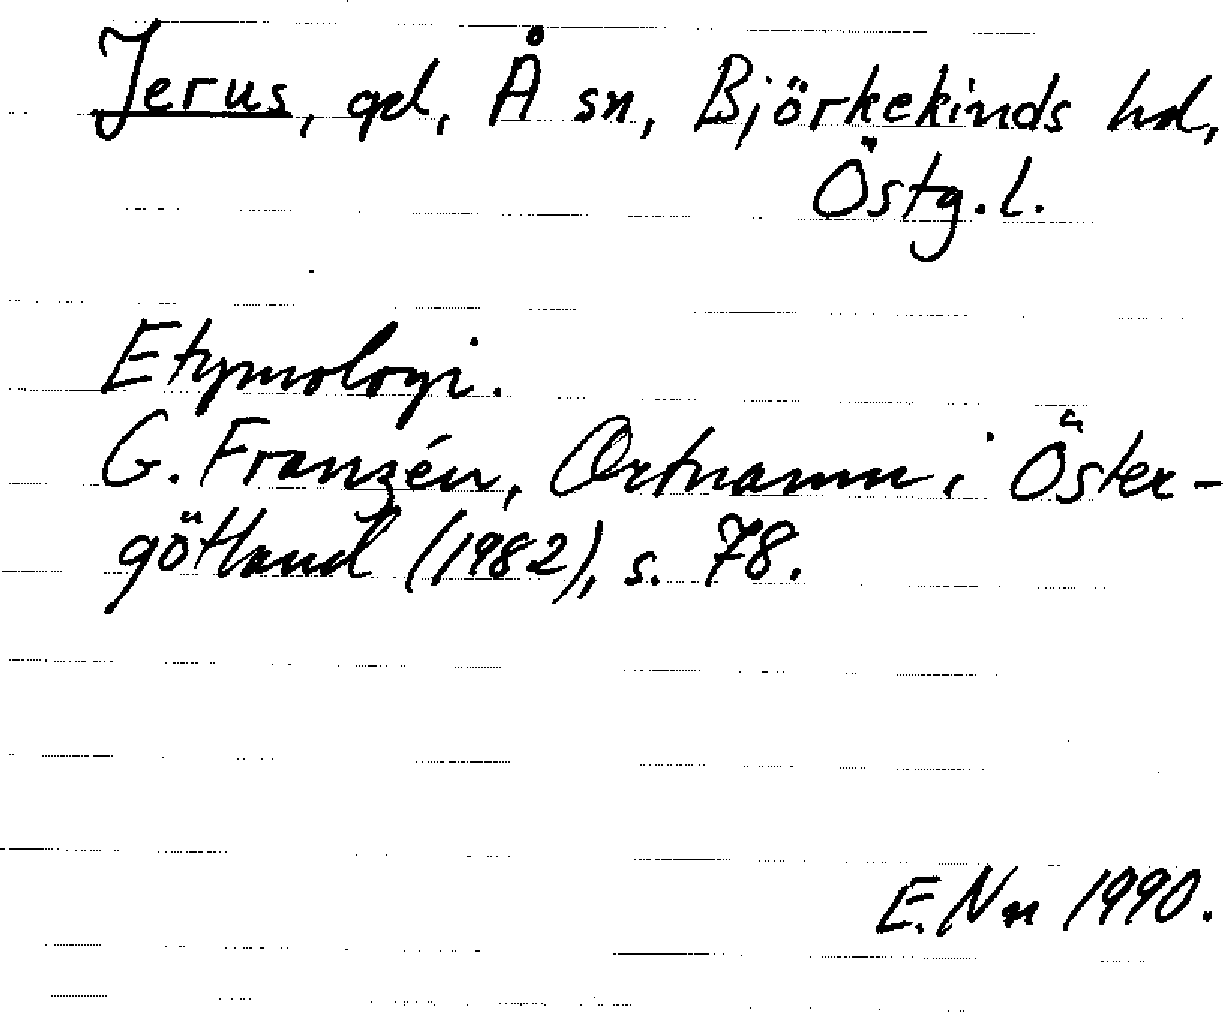 Jerus, gd, Å sn, Björkekinds hd,
Östg.l.
Etymologi.
G. Franzén, Ortnamn i Öster-
götland (1982), s. 78.
E. Nn 1990.